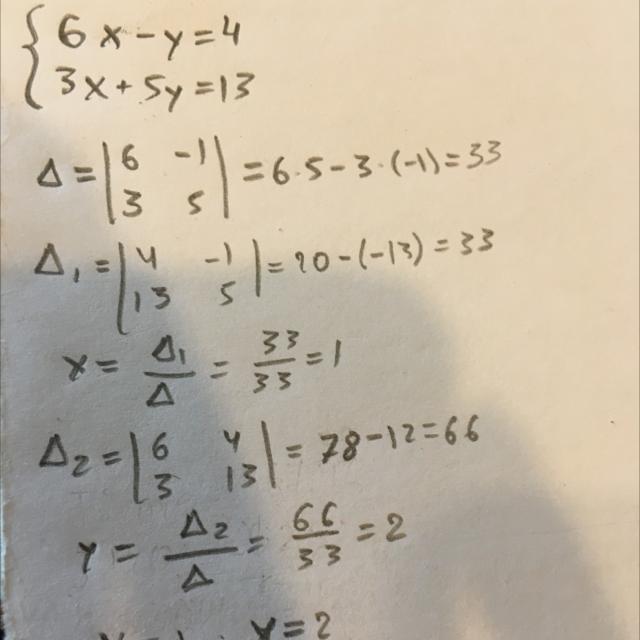 { 6x-y=4
3x+5y=13
Δ = |6 -1|
|3 5| = 6·5-3·(-1)=33
Δ₁ = |4 -1|
|13 5| = 20-(-13)=33
x = Δ₁/Δ = 33/33 = 1
Δ₂ = |6 4|
|3 13| = 78-12=66
y = Δ₂/Δ = 66/33 = 2
y=2